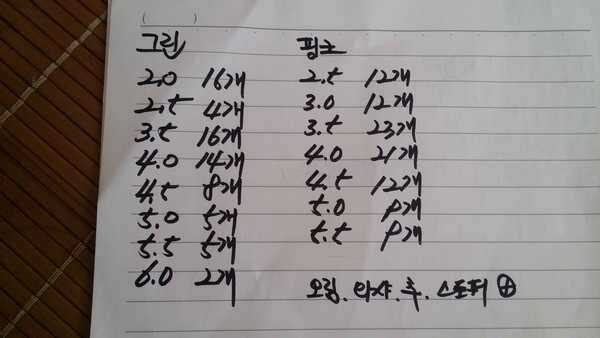 그린
2.0 16개
2.5 4개
3.5 16개
4.0 14개
4.5 8개
5.0 5개
5.5 5개
6.0 2개
핑크
2.5 12개
3.0 12개
3.5 23개
4.0 21개
4.5 12개
5.0 9개
5.5 9개
오링. 와샤. 추. 스토퍼 ⊕